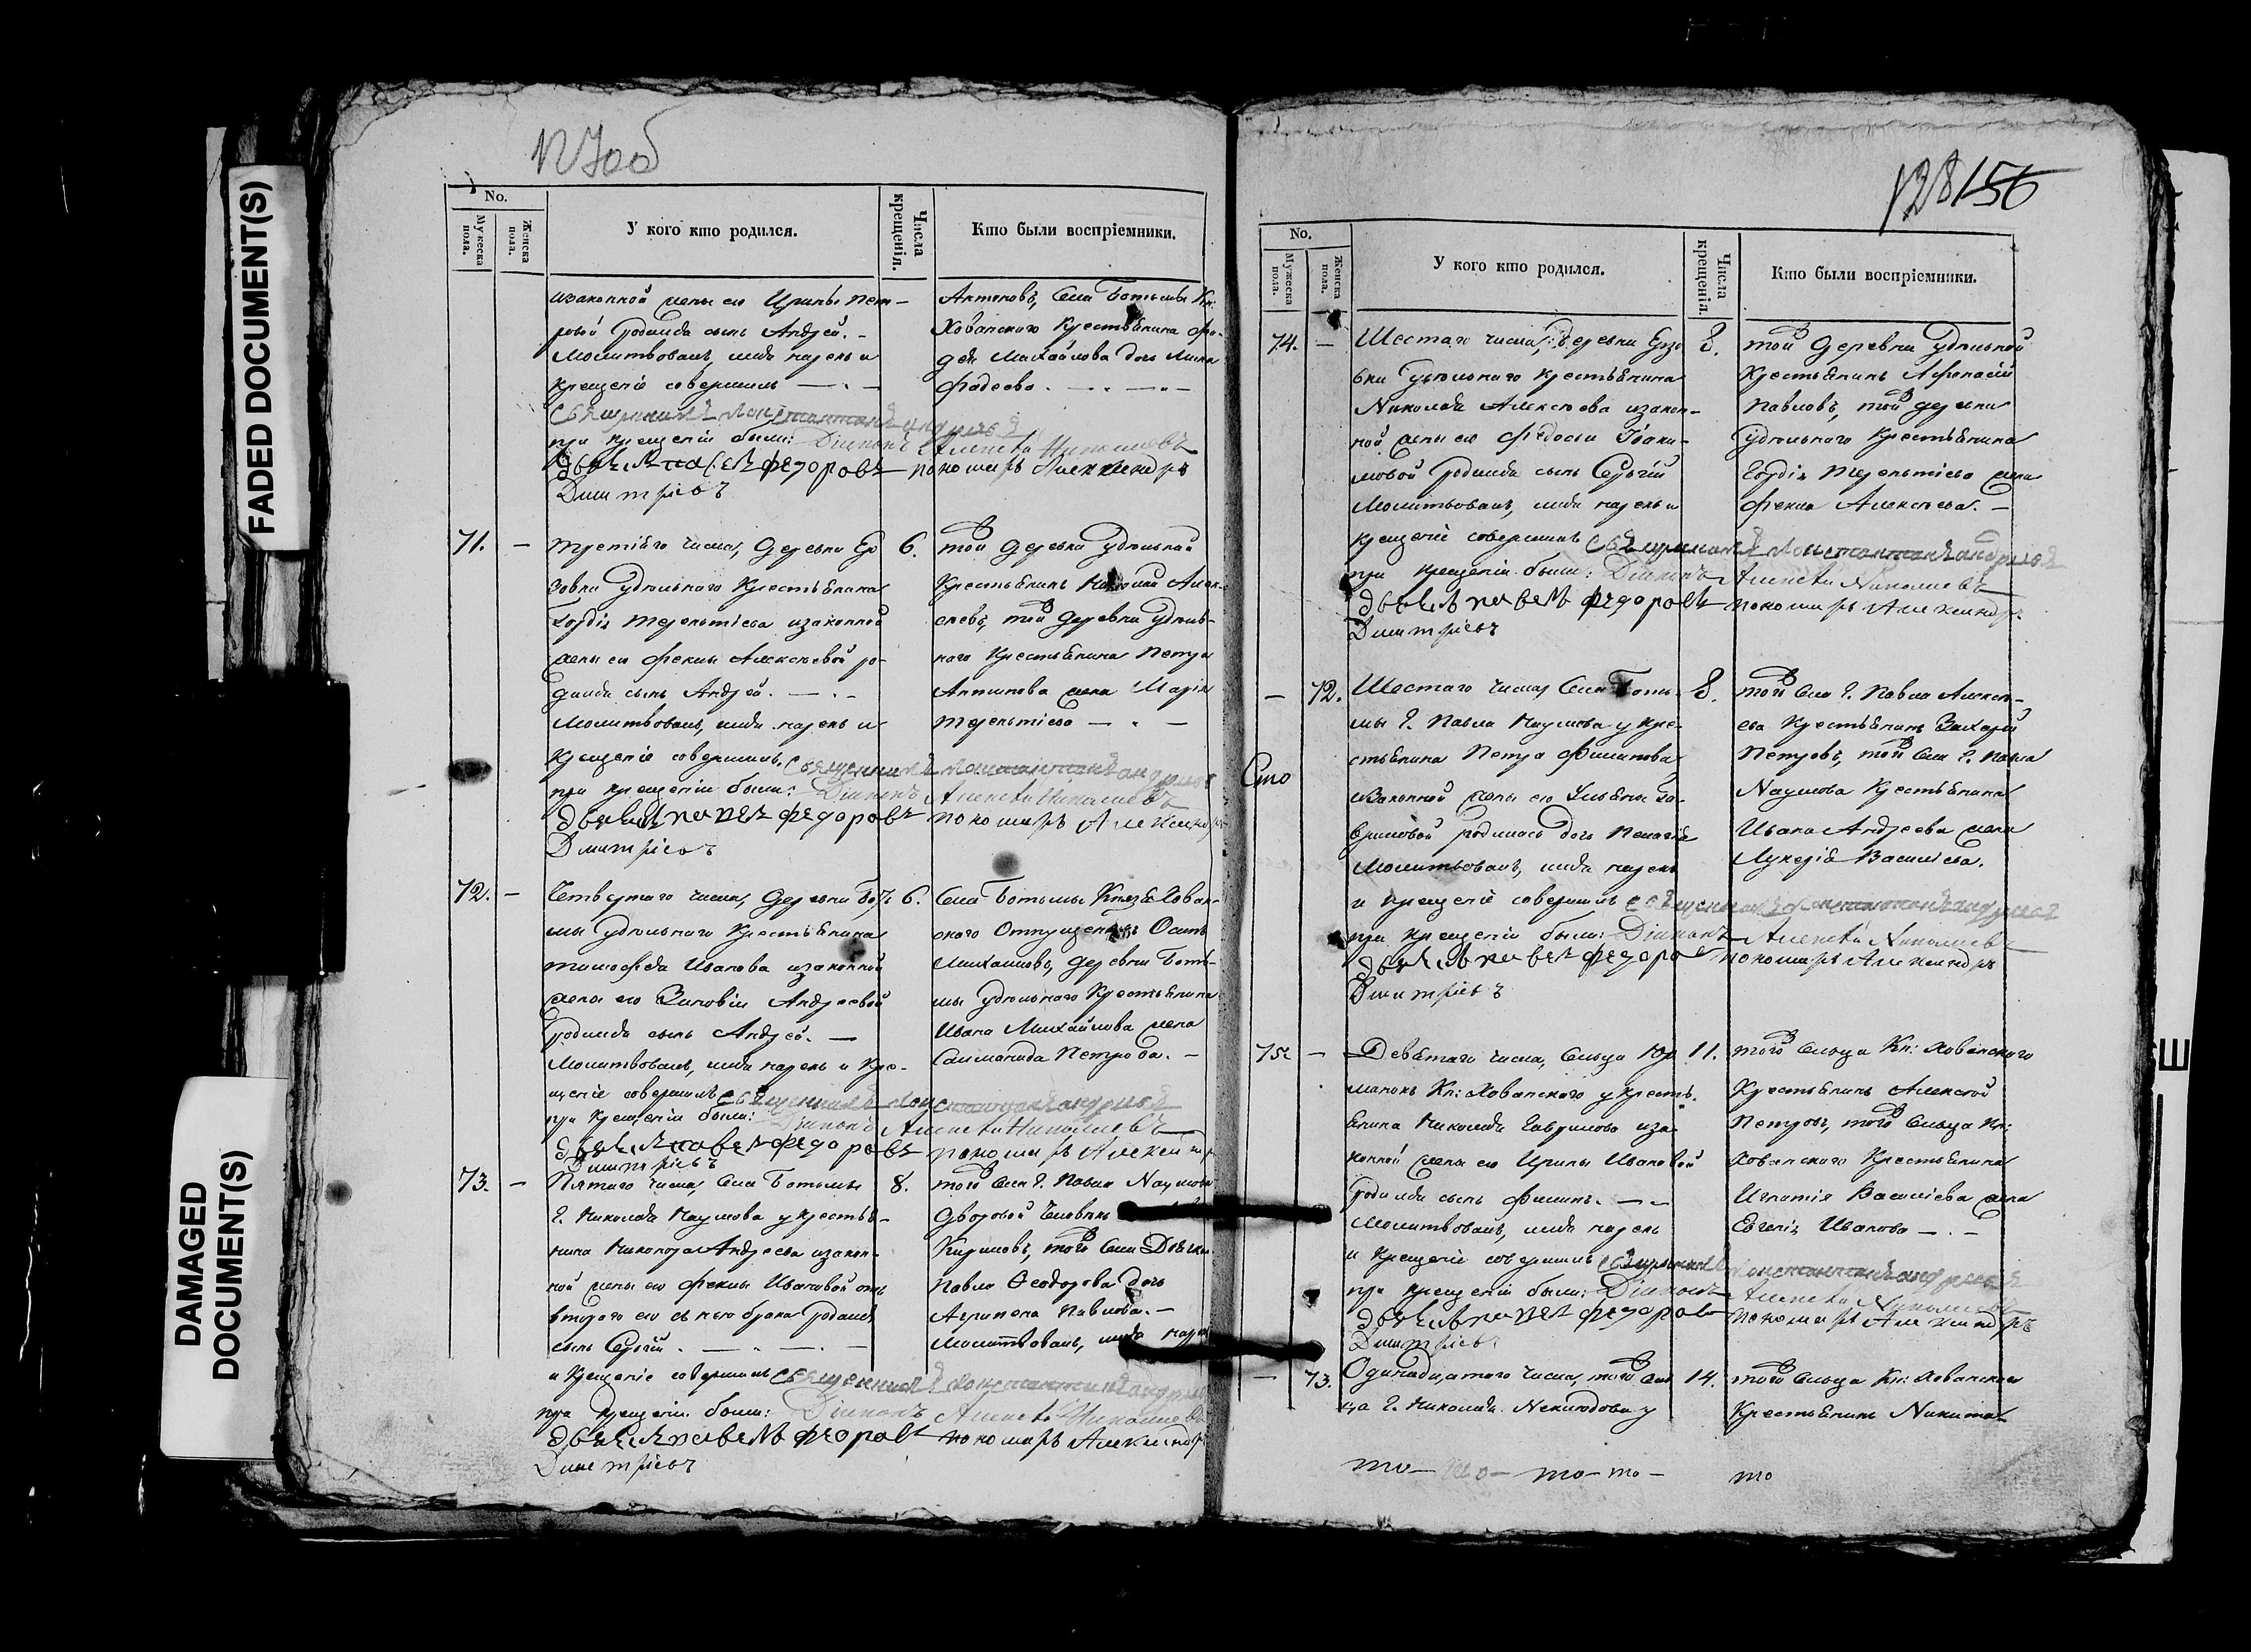 FADED DOCUMENT(S)
DAMAGED DOCUMENT(S)
No.
Мужеска пола.
Женска пола.
У кого кто родился.
Числа крещенія.
Кто были воспріемники.
изаконной жены его Ирины Пет-
ровой родился сынъ Андрей. -
Молитвовалъ, имя нарекъ и
крещеніе совершилъ
при крещеніи были: Діаконъ Алексѣй Николаевъ
дьячекъ Павелъ Федоровъ пономарь Александръ
Димитріевъ
Села Ботьмы Кн:
Хованскаго Крестьянина
Михайлова дочь
Фадеева.
71. -
третьяго числа, Деревни Ер
зовки удѣльнаго Крестьянина
Терентіева изаконной
жены его Феклы Алексѣевой ро-
дился сынъ Андрей.
Молитвовалъ, имя нарекъ и
крещеніе совершилъ Священникъ
при крещеніи были: Діаконъ Алексѣй Николаевъ
дьячекъ Павелъ Федоровъ пономарь Александръ
Димитріевъ
6.
той Деревни удѣльной
Крестьянинъ Николай Алек-
сѣевъ, той Деревни удѣль-
наго Крестьянина Петра
Антипова жена Марія
Терентіева
72. -
Четвертаго числа, Деревни Боть
мы удѣльнаго Крестьянина
Тимофея Иванова изаконной
жены его Зиновіи Андреевой
родился сынъ Андрей. -
Молитвовалъ, имя нарекъ и Кре-
щеніе совершилъ Священникъ
при Крещеніи были: Діаконъ Алексѣй Николаевъ
дьячекъ Павелъ Федоровъ пономарь
Димитріевъ
6.
Села Ботьмы Князя Хован-
скаго Отпущенникъ Осипъ
Михайловъ, деревни Боть-
мы удѣльнаго Крестьянина
Ивана Михайлова жена
Петрова. -
73. -
Пятаго числа, Села Ботьмы
Г. Николая Наумова у крестья-
нина Никанора Андреева изакон-
ной жены его Феклы Ивановой отъ
втораго его съ нею брака родился
сынъ Сергій.
8.
того Села Г. Павла Наумова
дворовой человѣкъ
Кириловъ, того Села Дьячка
Павла Ѳеодорова дочь
Агрипена Павлова. -
Молитвовалъ, имя нарекъ
и Крещеніе совершилъ Священникъ
при крещеніи были: Діаконъ Алексѣй Николаевъ
дьячекъ Павелъ Федоровъ пономарь Александръ
Димитріевъ
128 156
No.
Мужеска пола.
Женска пола.
У кого кто родился.
Числа крещенія.
Кто были воспріемники.
74. -
Шестаго числа, Деревни Ерзо
вки удѣльнаго крестьянина
Николая Алексѣева изакон-
ной жены его Федосьи Іоаки-
мовой родился сынъ Сергій
Молитвовалъ, имя нарекъ и
крещеніе совершилъ
при крещеніи были: Діаконъ Алексѣй Николаевъ
дьячекъ Павелъ Федоровъ пономарь Александръ
Димитріевъ
8.
той Деревни удѣльной
Крестьянинъ Афанасій
Павловъ, той деревни
удѣльнаго Крестьянина
Терентіева жена
Фекла Алексѣева. -
- 72.
Шестаго числа, Села Боть-
мы Г. Павла Наумова у кре-
стьянина Петра Филипова
изаконной жены его Ульяны Га-
вриловой родилась дочь Пелагія
Молитвовалъ, имя нарекъ
и крещеніе совершилъ
при крещеніи были: Діаконъ Алексѣй Николаевъ
дьячекъ Павелъ Федоровъ пономарь Александръ
Димитріевъ
8.
того Села Г. Павла Алексѣ-
ева Крестьянинъ Захарій
Петровъ, того Села Г. Павла
Наумова Крестьянина
Ивана Андреева жена
Лукерія Василіева.
Сто
75. -
Девятаго числа, Сельца Юр
манокъ Кн: Хованскаго у кресть-
янина Николая Гаврилова иза-
конной жены его Ирины Ивановой
родился сынъ Филипъ.
Молитвовалъ, имя нарекъ
и крещеніе совершилъ
при крещеніи были: Діаконъ Алексѣй Николаевъ
дьячекъ Павелъ Федоровъ пономарь Александръ
Димитріевъ
11.
того Сельца Кн: Хованскаго
Крестьянинъ Алексѣй
Петровъ, того Сельца Кн:
Хованскаго Крестьянина
Игнатія Василіева жена
Евгенія Иванова
- 73.
Одинадцатаго числа, того Сель
ца Г. Николая Неклюдова у
14.
того Сельца Кн: Хованскаго
Крестьянинъ Никита
то - то - то - то - то